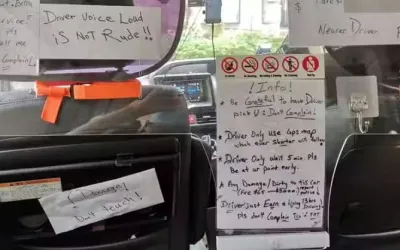 Driver Voice Loud
is Not Rude!!
service?
Pls
all me
Complain!
Nearer Driver
! Info!
* Be Grateful to have Driver
pick U & Don't Complain!
* Driver Only Use Gps map
which ever shorter will follow
* Driver Only wait 5 min. Pls
be at ur point early.
* Any Damage/Dirty to his Car
Driver just Earn a living
Driving
pls don't Complain
(Damage)
Don't touch!